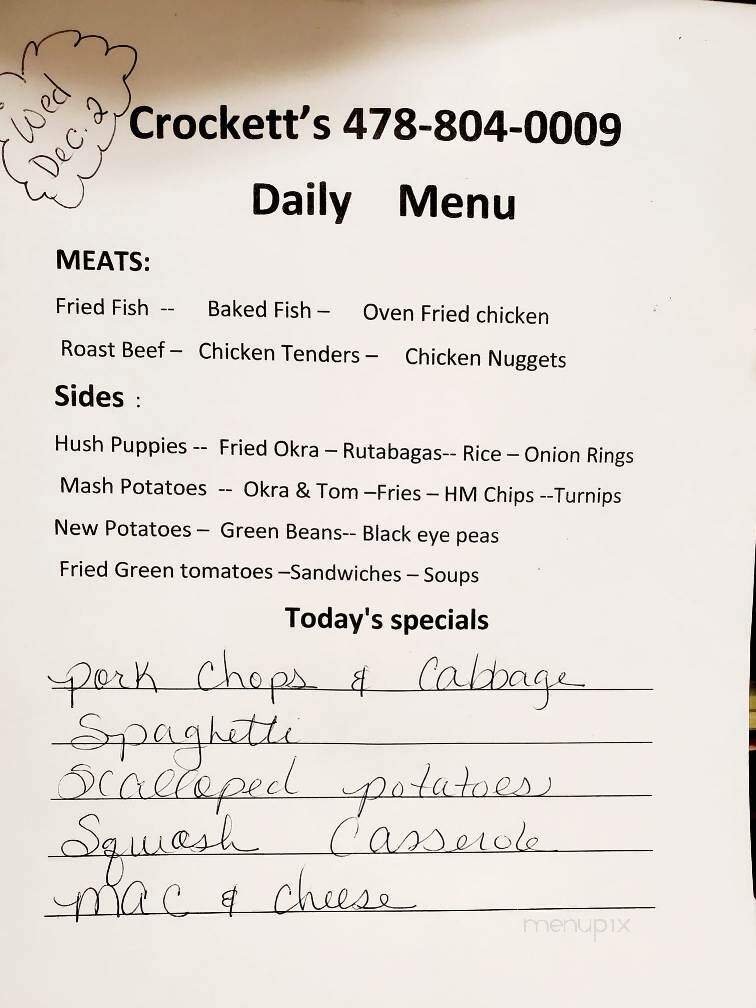 Wed
Dec. 2
Crockett's 478-804-0009
Daily Menu
MEATS:
Fried Fish -- Baked Fish – Oven Fried chicken
Roast Beef – Chicken Tenders – Chicken Nuggets
Sides :
Hush Puppies -- Fried Okra – Rutabagas-- Rice – Onion Rings
Mash Potatoes -- Okra & Tom –Fries – HM Chips --Turnips
New Potatoes – Green Beans-- Black eye peas
Fried Green tomatoes –Sandwiches – Soups
Today's specials
pork chops & Cabbage
Spaghetti
Scalloped potatoes
Squash Casserole
mac & cheese
menupix